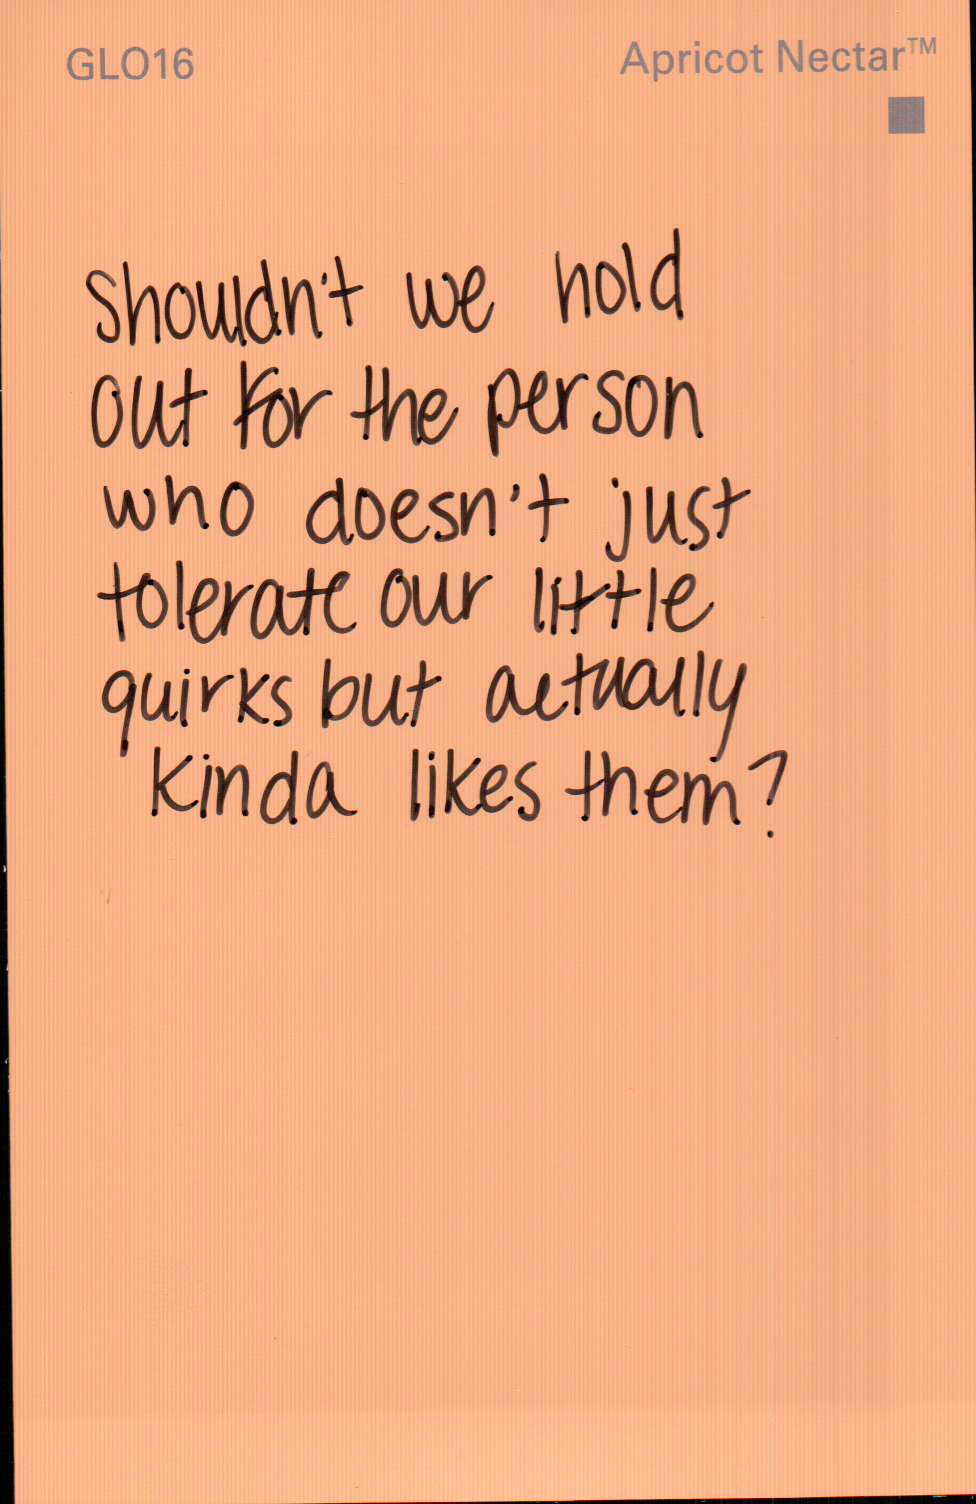 GLO16
Apricot Nectar™
Shouldn't we hold
out for the person
who doesn't just
tolerate our little
quirks but actually
kinda likes them?